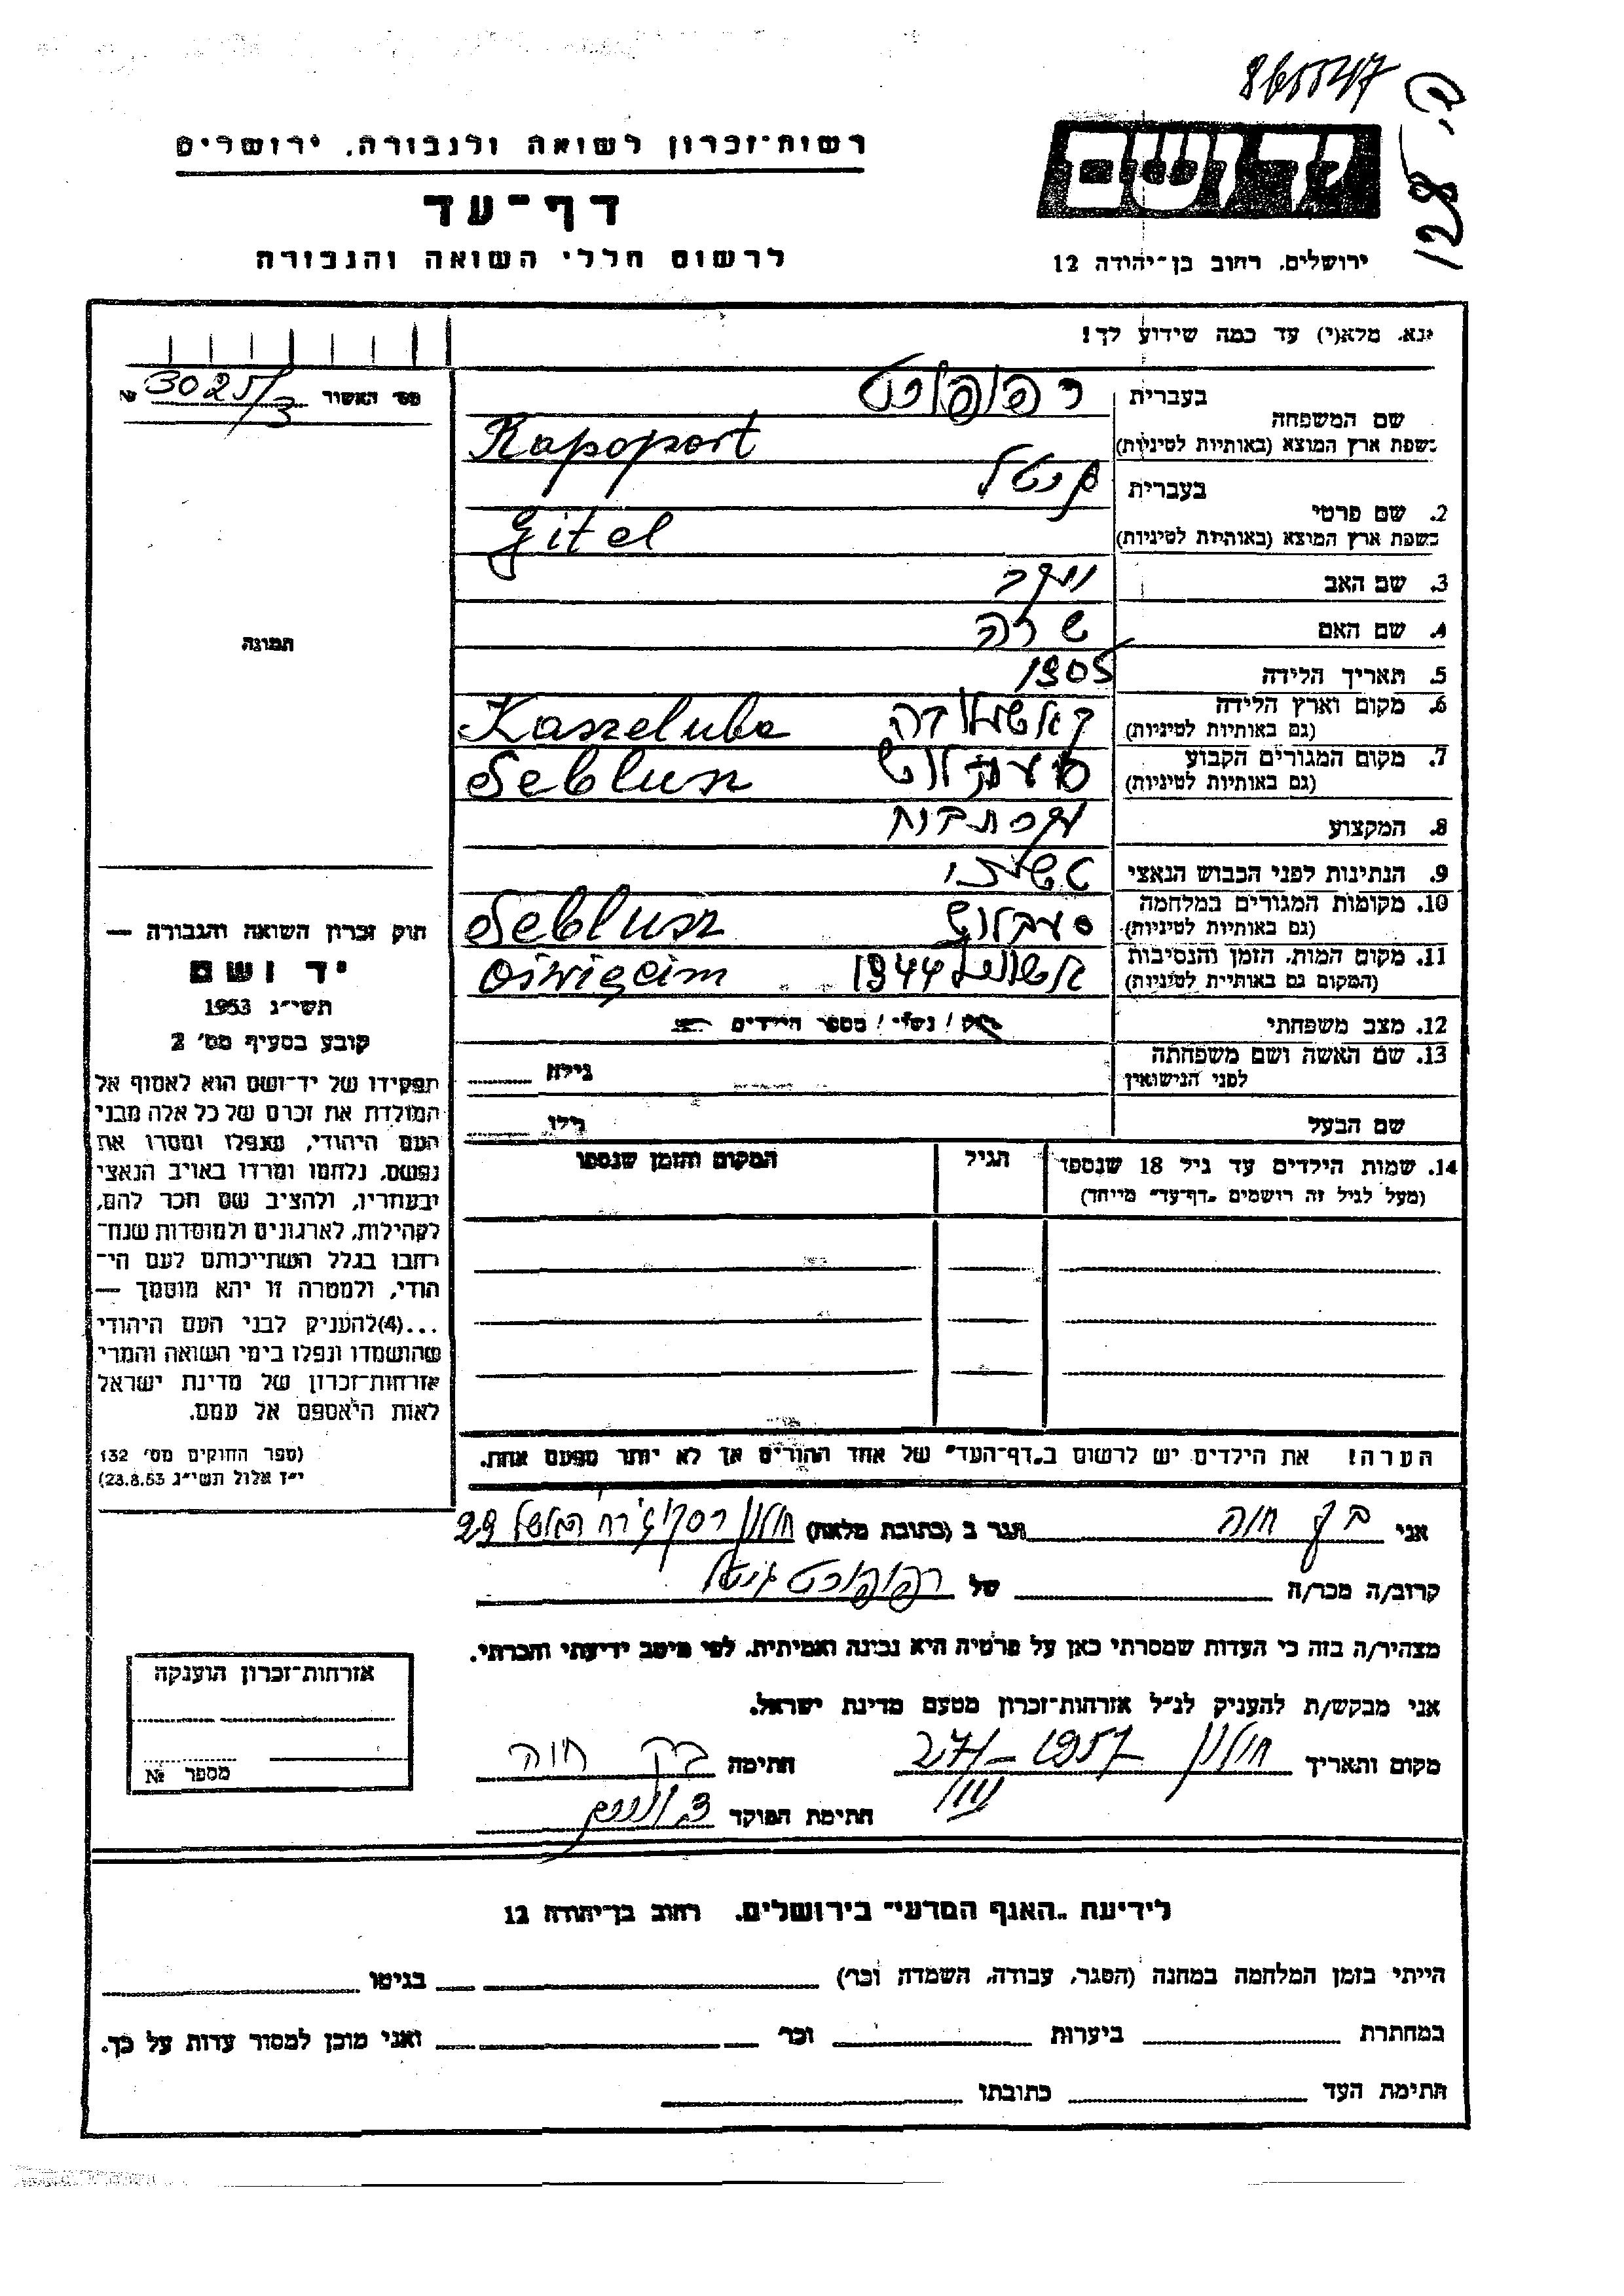 ב. 128
רשות־זכרון לשואה ולגבורה, ירושלים
דף־עד
לרשום חללי השואה והגבורה
ידושם
ירושלים, רחוב בן־יהודה 12
נא, מלא(י) עד כמה שידוע לך!
מס׳ האשור 3025/3 №
תמונה
חוק זכרון השואה והגבורה —
יד ושם
תשי״ג 1953
קובע בסעיף מס׳ 2
תפקידו של יד־ושם הוא לאסוף אל
המולדת את זכרם של כל אלה מבני
העם היהודי, שנפלו ומסרו את
נפשם, נלחמו ומרדו באויב הנאצי
ובעוזריו, ולהציב שם וזכר להם,
לקהילות, לארגונים ולמוסדות שנח־
רבו בגלל השתייכותם לעם הי־
הודי, ולמטרה זו יהא מוסמך —
...(4)להעניק לבני העם היהודי
שהושמדו ונפלו בימי השואה והמרי
אזרחות־זכרון של מדינת ישראל
לאות היאספם אל עמם.
(ספר החוקים מס׳ 132
י״ז אלול תשי״ג 23.8.53)
בעברית רפופורט
שם המשפחה
בשפת ארץ המוצא (באותיות לטיניות) Rapoport
בעברית גיטל
2. שם פרטי
בשפת ארץ המוצא (באותיות לטיניות) Gitel
3. שם האב יעקב
4. שם האם שרה
5. תאריך הלידה 1905
6. מקום וארץ הלידה
(גם באותיות לטיניות) Kaszeluba
7. מקום המגורים הקבוע
(גם באותיות לטיניות) סעבלוש Seblusz
8. המקצוע
9. הנתינות לפני הכבוש הנאצי
10. מקומות המגורים במלחמה
(גם באותיות לטיניות) סעבלוש Seblusz
11. מקום המות, הזמן והנסיבות
(המקום גם באותיית לטיניות) 1944 Oświęcim
12. מצב משפחתי רווק / נשוי / מספר הילדים
13. שם האשה ושם משפחתה גילה
לפני הנישואין
שם הבעל גילו
14. שמות הילדים עד גיל 18 שנספו הגיל המקום והזמן שנספו
(מעל לגיל זה רושמים „דף־עד״ מיוחד)
הערה! את הילדים יש לרשום ב„דף־העד״ של אחד ההורים אך לא יותר מפעם אחת.
אני חוה הגר ב (כתובת מלאה) חולון 29
קרוב/ה מכר/ה של רפופורט גיטל
מצהיר/ה בזה כי העדות שמסרתי כאן על פרטיה היא נכונה ואמיתית, לפי מיטב ידיעתי והכרתי.
אני מבקש/ת להעניק לנ״ל אזרחות־זכרון מטעם מדינת ישראל.
מקום ותאריך חולון 1957 חתימה חוה
חתימת הפוקד
אזרחות־זכרון הוענקה
מספר №
לידיעת „האגף המדעי״ בירושלים, רחוב בן־יהודה 12
הייתי בזמן המלחמה במחנה (הסגר, עבודה, השמדה וכו׳) בגיטו
במחתרת ביערות וכו׳ ואני מוכן למסור עדות על כך.
חתימת העד כתובתו